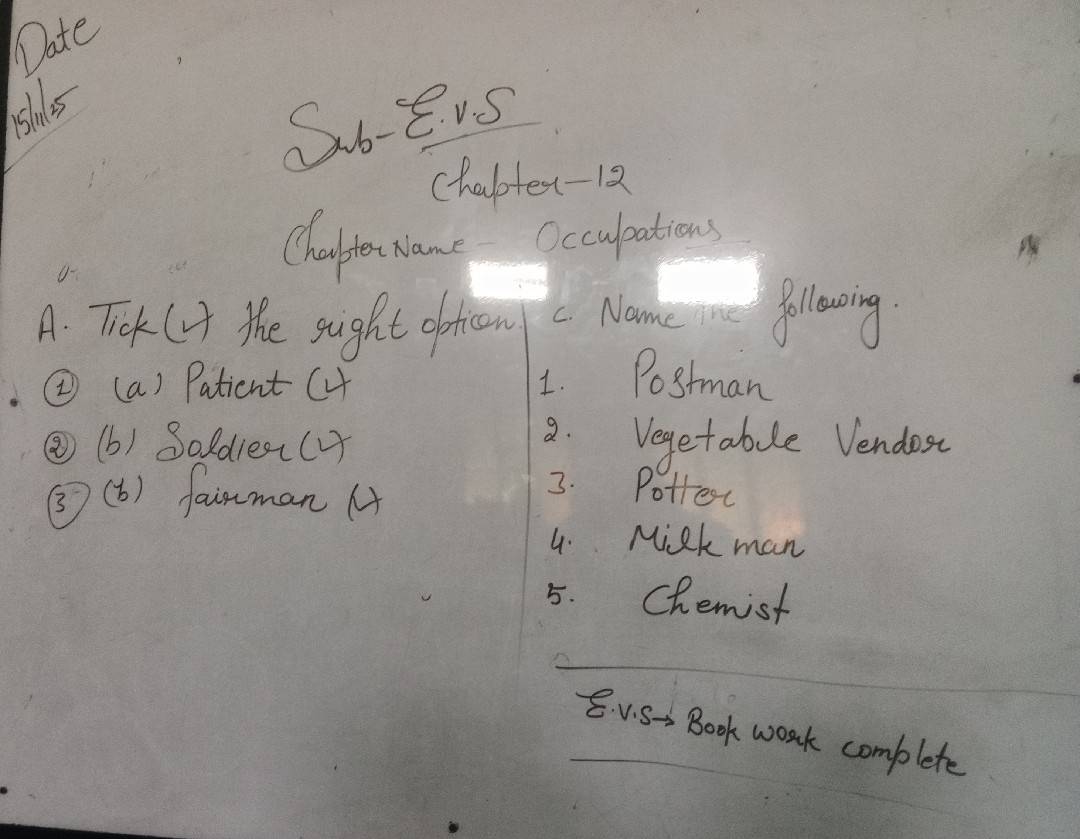 Date
15/11/25
Sub- E.V.S
Chapter-12
Chapter Name - Occupations
A. Tick (✓) the right option.
① (a) Patient (✓)
② (b) Soldier (✓)
③ (b) fairman (✓)
C. Name the following.
1. Postman
2. Vegetable Vendor
3. Potter
4. Milk man
5. Chemist
E.V.S → Book work complete